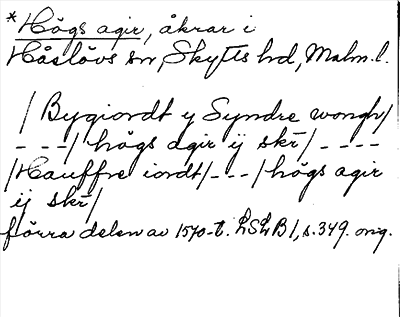 *Högs agir, åkrar i
Håslövs sn, Skytts hd, Malm. l.
/Bygiordt y Syndre wongh/
---/högs agir ij skr̄/----
/Hauffre iordt/---/högs agir
ij skr̄/
förra delen av 1570-t. LSLB1, s. 349. orig.